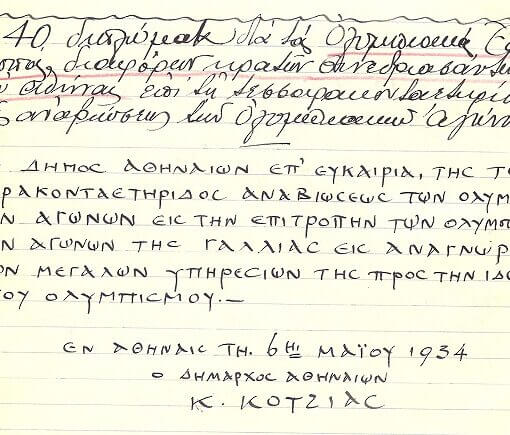 40 διπλώματα διά τάς Ὀλυμπιακάς Ἐ
διαφόρων κρατῶν συνεδριασάντ
Ἀθήνας ἐπί τῇ τεσσαρακονταετηρί
ς ἀναβιώσεως τῶν Ὀλυμπιακῶν Ἀγών
ΔΗΜΟΣ ΑΘΗΝΑΙΩΝ ΕΠ' ΕΥΚΑΙΡΙΑ, ΤΗΣ Τ
ΡΑΚΟΝΤΑΕΤΗΡΙΔΟΣ ΑΝΑΒΙΩΣΕΩΣ ΤΩΝ ΟΛΥΜ
ΩΝ ΑΓΩΝΩΝ ΕΙΣ ΤΗΝ ΕΠΙΤΡΟΠΗΝ ΤΩΝ ΟΛΥΜΠ
ΩΝ ΑΓΩΝΩΝ ΤΗΣ ΓΑΛΛΙΑΣ ΕΙΣ ΑΝΑΓΝΩΡ
ΩΝ ΜΕΓΑΛΩΝ ΥΠΗΡΕΣΙΩΝ ΤΗΣ ΠΡΟΣ ΤΗΝ ΙΔ
ΟΥ ΟΛΥΜΠΙΣΜΟΥ.—
ΕΝ ΑΘΗΝΑΙΣ ΤΗ. 6ΗΙ ΜΑΪΟΥ 1934
Ο ΔΗΜΑΡΧΟΣ ΑΘΗΝΑΙΩΝ
Κ. ΚΟΤΖΙΑΣ